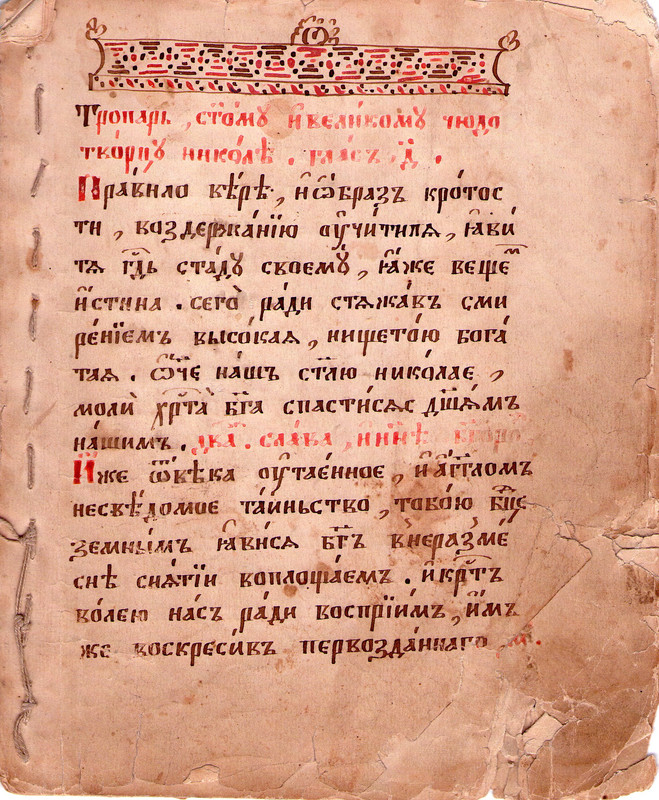 Тропарь, ст҃ому и҆ вели́кому чюдо
тво́рцу нико́лѣ. гла́съ. д҃.
Пра́вило вѣ́рѣ, и҆ ѡ҆́бразъ кро́тос
ти, воздержа́нїю ᲂу҆чи́тиля, ꙗ҆ви́
тя гд҇ь ста́ду своему̀, ꙗ҆́же веще́м
и҆́стина. сего̀ ра́ди стяжа́въ сми
ре́нїемъ высо́кая, нището́ю бога́
тая. ѻ҆́ч҃е на́шъ ст҃лю нико́лае,
молѝ хрⷭ҇та̀ бг҃а спасти́сяс дш҃а́мъ
на́шимъ. два̀. сла́ва, и҆ ни́нѣ
И҆́же ѿ вѣ́ка ᲂу҆тае́нное, и҆ а҆́гг҃лом
несвѣ́домое та́иньство, тобо́ю бц҃е
земны́мъ ꙗ҆ви́ся бг҃ъ в неразмѣ́
снѣ сня́тїи воплоща́ем. и҆ крⷭ҇тъ
во́лею на́съ ра́ди воспрїи́мъ, и҆́мъ
же воскреси́въ первозда́ннаго